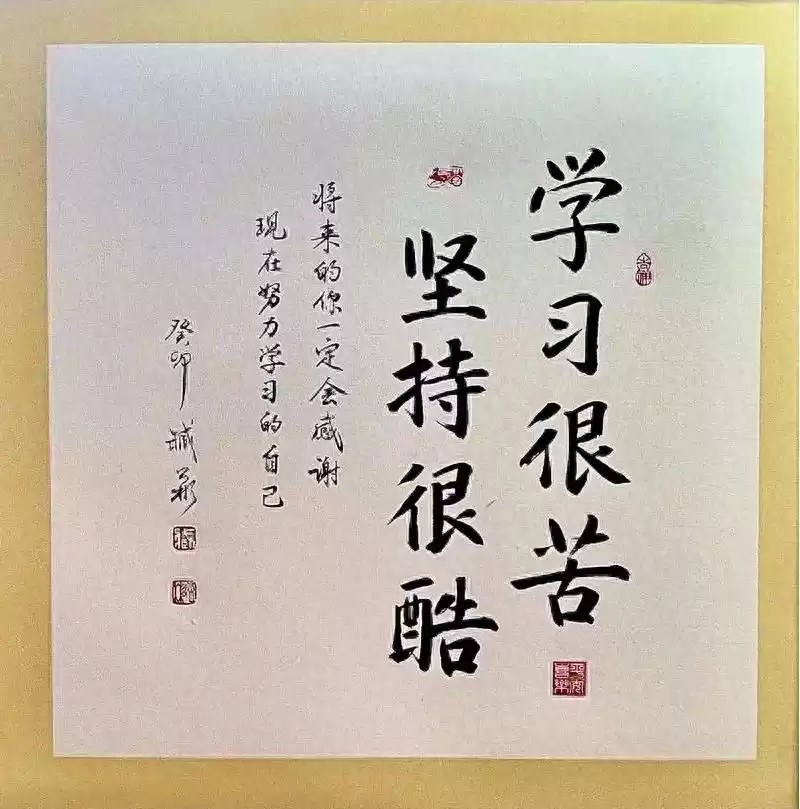 学习很苦
坚持很酷
将来的你一定会感谢
现在努力学习的自己
癸卯 臧彩
平安喜乐